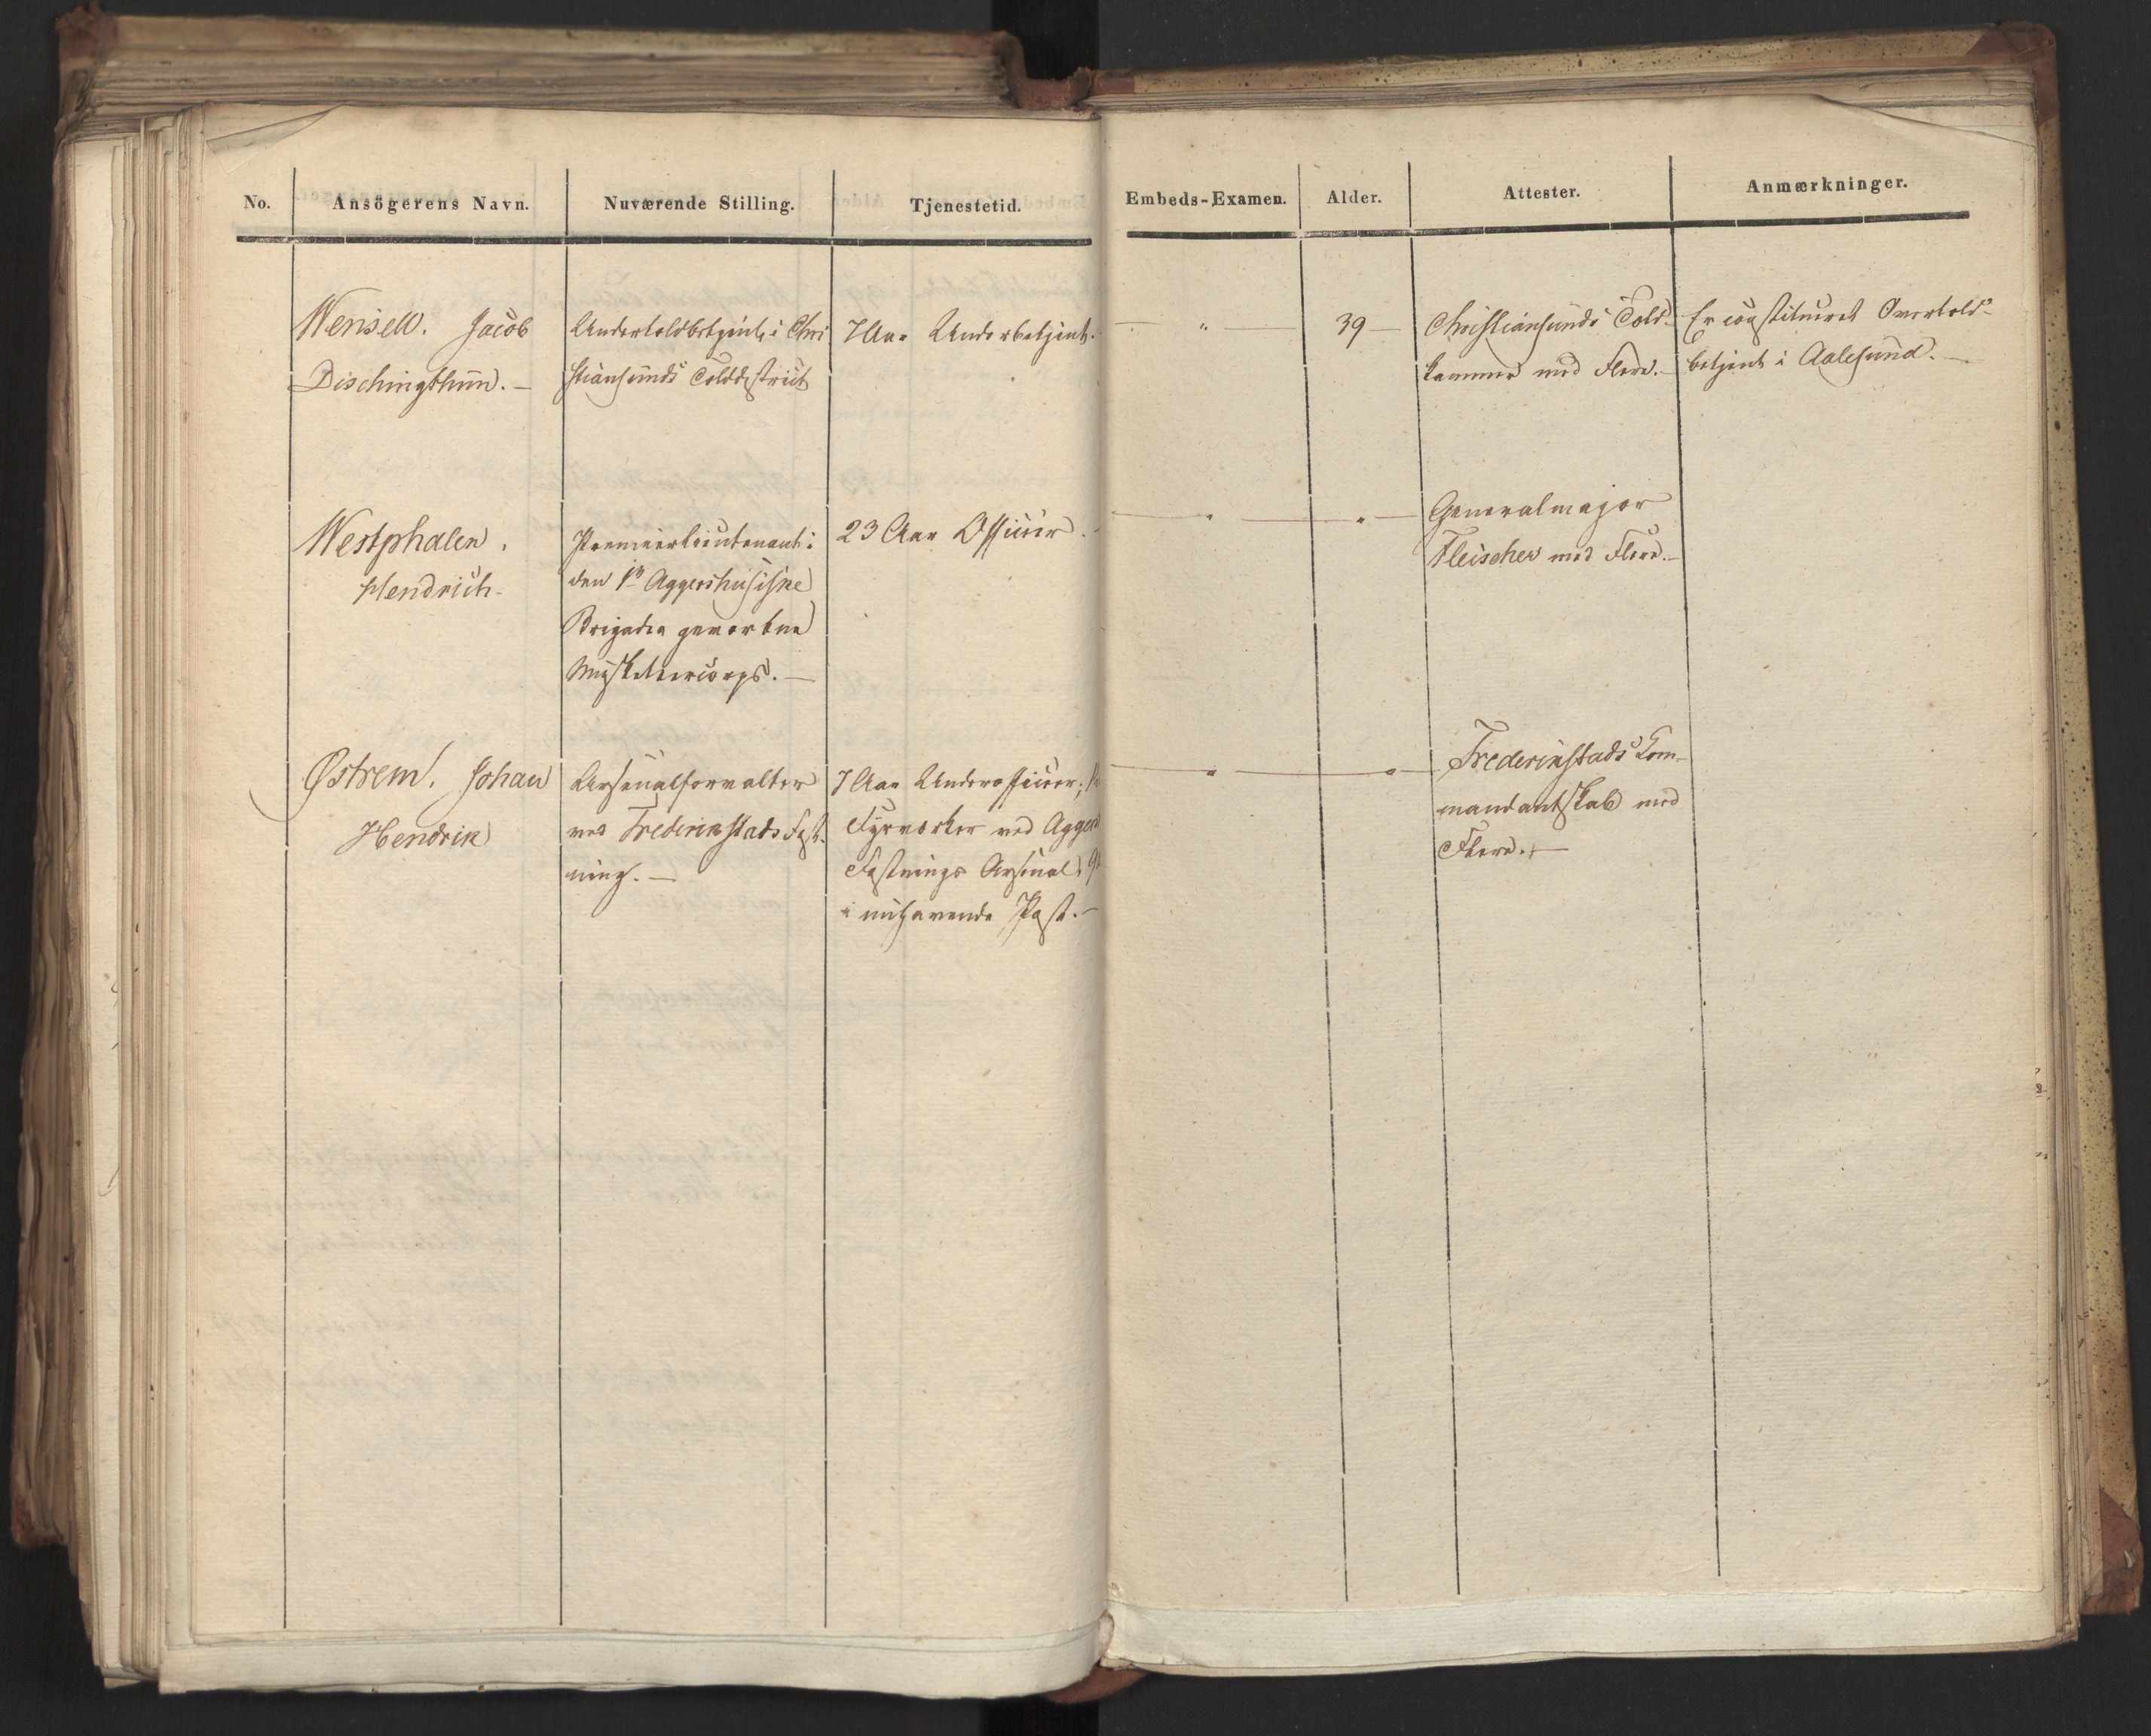 No. Ansögerens Navn. Nuværende Stilling. Tjenestetid. Embeds-Examen. Alder. Attester. Anmærkninger.
Wensell. Jacob
Dischingthun. —
Undertoldbetjent i Chri
stiansunds Tolddistrict
7 Aar Underbetjent.
— „
39 —
Christiansunds Told-
kammer med Flere. —
Er constitueret Overtold-
betjent i Aalesund. —
Westphalen.
Hendrich.
Premierlieutenant i
den 1ste Aggershusiske
Brigades gevorbne
Musketeercorps. —
23 Aar Officier. -
— „ — „ —
Generalmajor
Fleischer med Flere. —
Østrem. Johan
Hendrik
Arsenalforvalter
ved Frederikstads Fæst-
ning. —
7 Aar Underofficier;
Fyrværker ved Agger
Fæstnings Arsenal, 9
i nuhavende Post. —
— „ — „ —
Frederikstads Kom-
mandantskab med
Flere. —